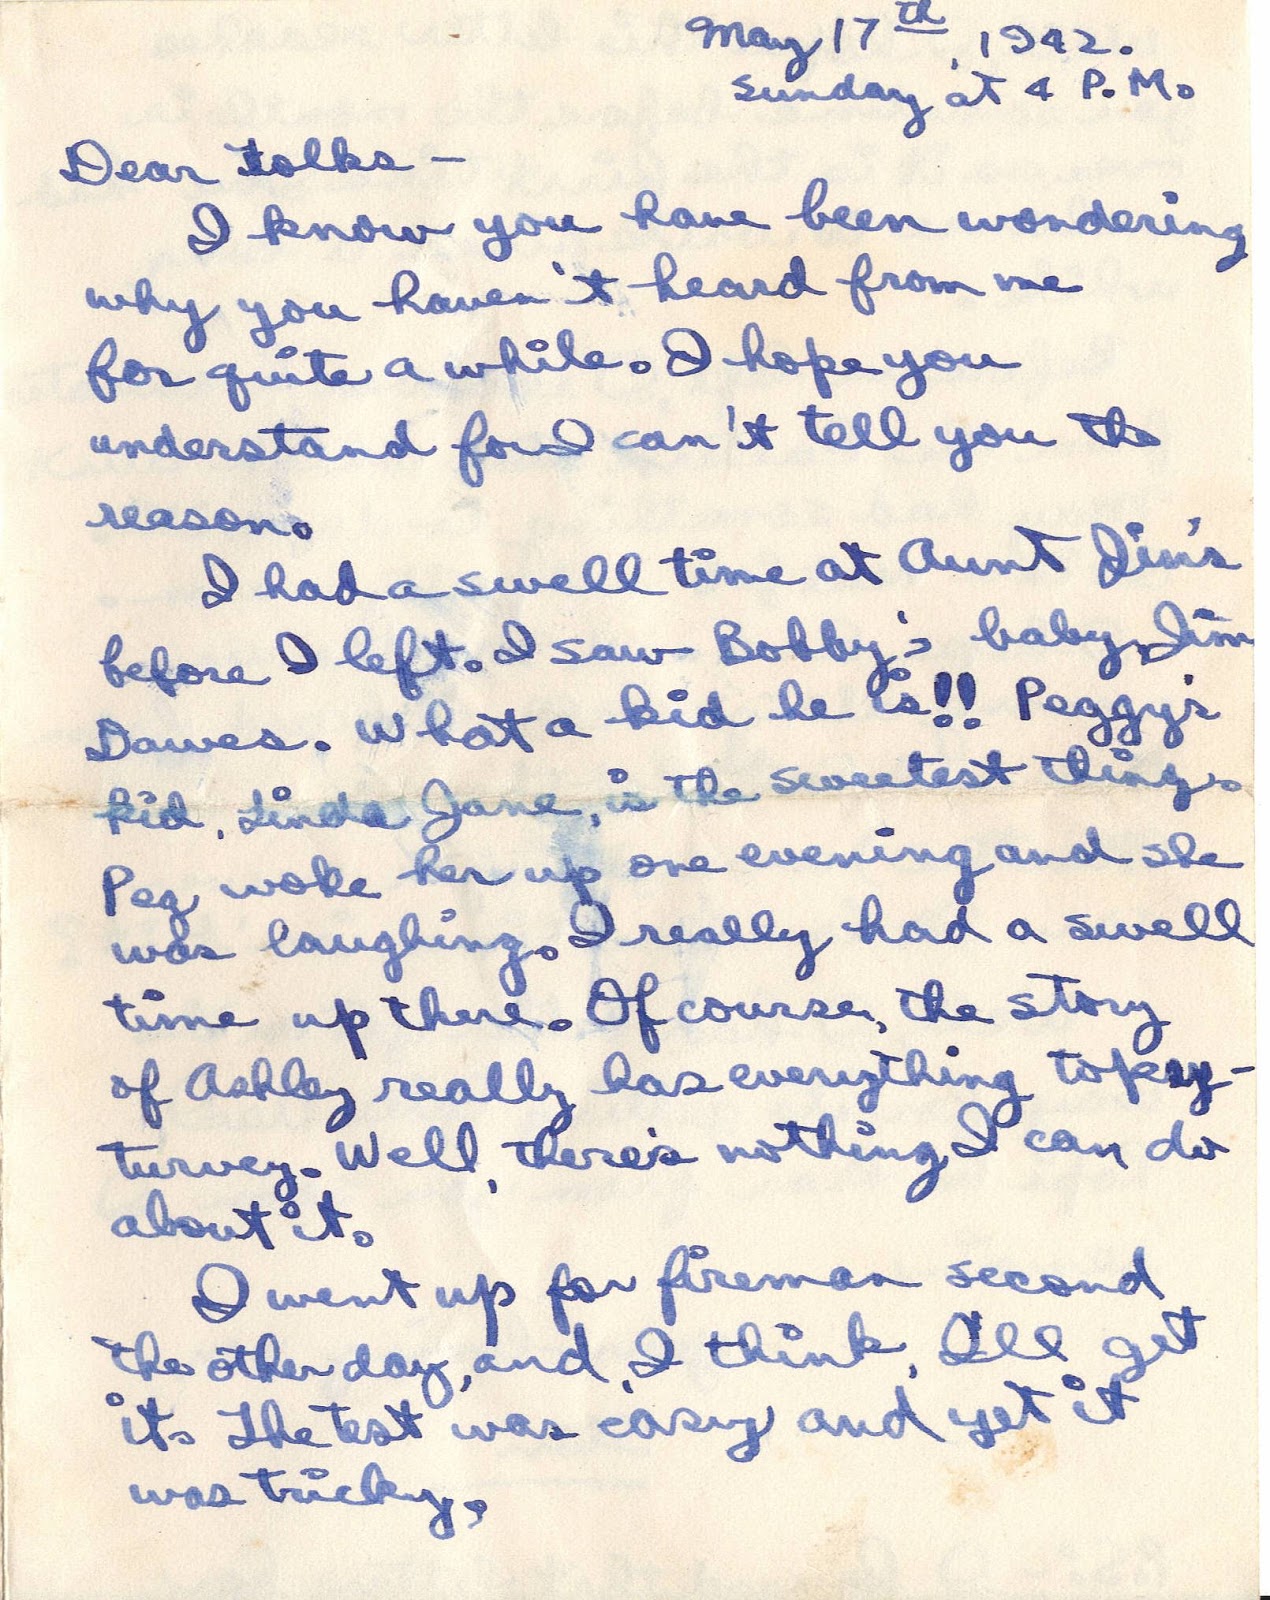 May 17th, 1942.
Sunday at 4 P.M.
Dear folks —
I know you have been wondering
why you haven't heard from me
for quite a while. I hope you
understand for I can't tell you the
reason.
I had a swell time at Aunt Jin's
before I left. I saw Bobby's baby, Jim
Dawes. What a kid he is!! Peggy's
kid, Linda Jane, is the sweetest thing.
Peg woke her up one evening and she
was laughing. I really had a swell
time up there. Of course, the story
of Ashley really has everything topsy-
turvey. Well, there's nothing I can do
about it.
I went up for fireman second
the other day, and, I think, I'll get
it. The test was easy and yet it
was tricky.